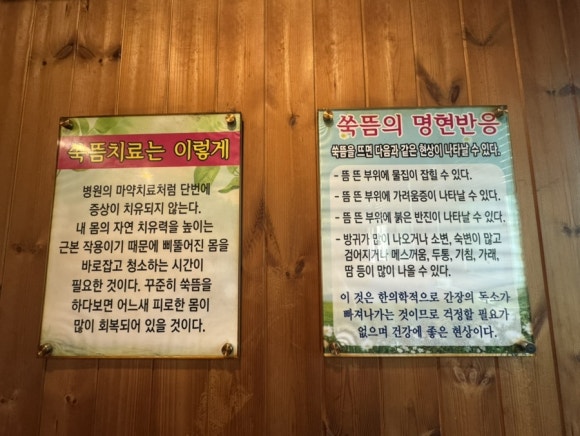 쑥뜸치료는 이렇게
병원의 마약치료처럼 단번에
증상이 치유되지 않는다.
내 몸의 자연 치유력을 높이는
근본 작용이기 때문에 삐뚤어진 몸을
바로잡고 청소하는 시간이
필요한 것이다. 꾸준히 쑥뜸을
하다보면 어느새 피로한 몸이
많이 회복되어 있을 것이다.
쑥뜸의 명현반응
쑥뜸을 뜨면 다음과 같은 현상이 나타날 수 있다.
- 뜸 뜬 부위에 물집이 잡힐 수 있다.
- 뜸 뜬 부위에 가려움증이 나타날 수 있다.
- 뜸 뜬 부위에 붉은 반진이 나타날 수 있다.
- 방귀가 많이 나오거나 소변, 숙변이 많고
검어지거나 메스꺼움, 두통, 기침, 가래,
땀 등이 많이 나올 수 있다.
이 것은 한의학적으로 간장의 독소가
빠져나가는 것이므로 걱정할 필요가
없으며 건강에 좋은 현상이다.